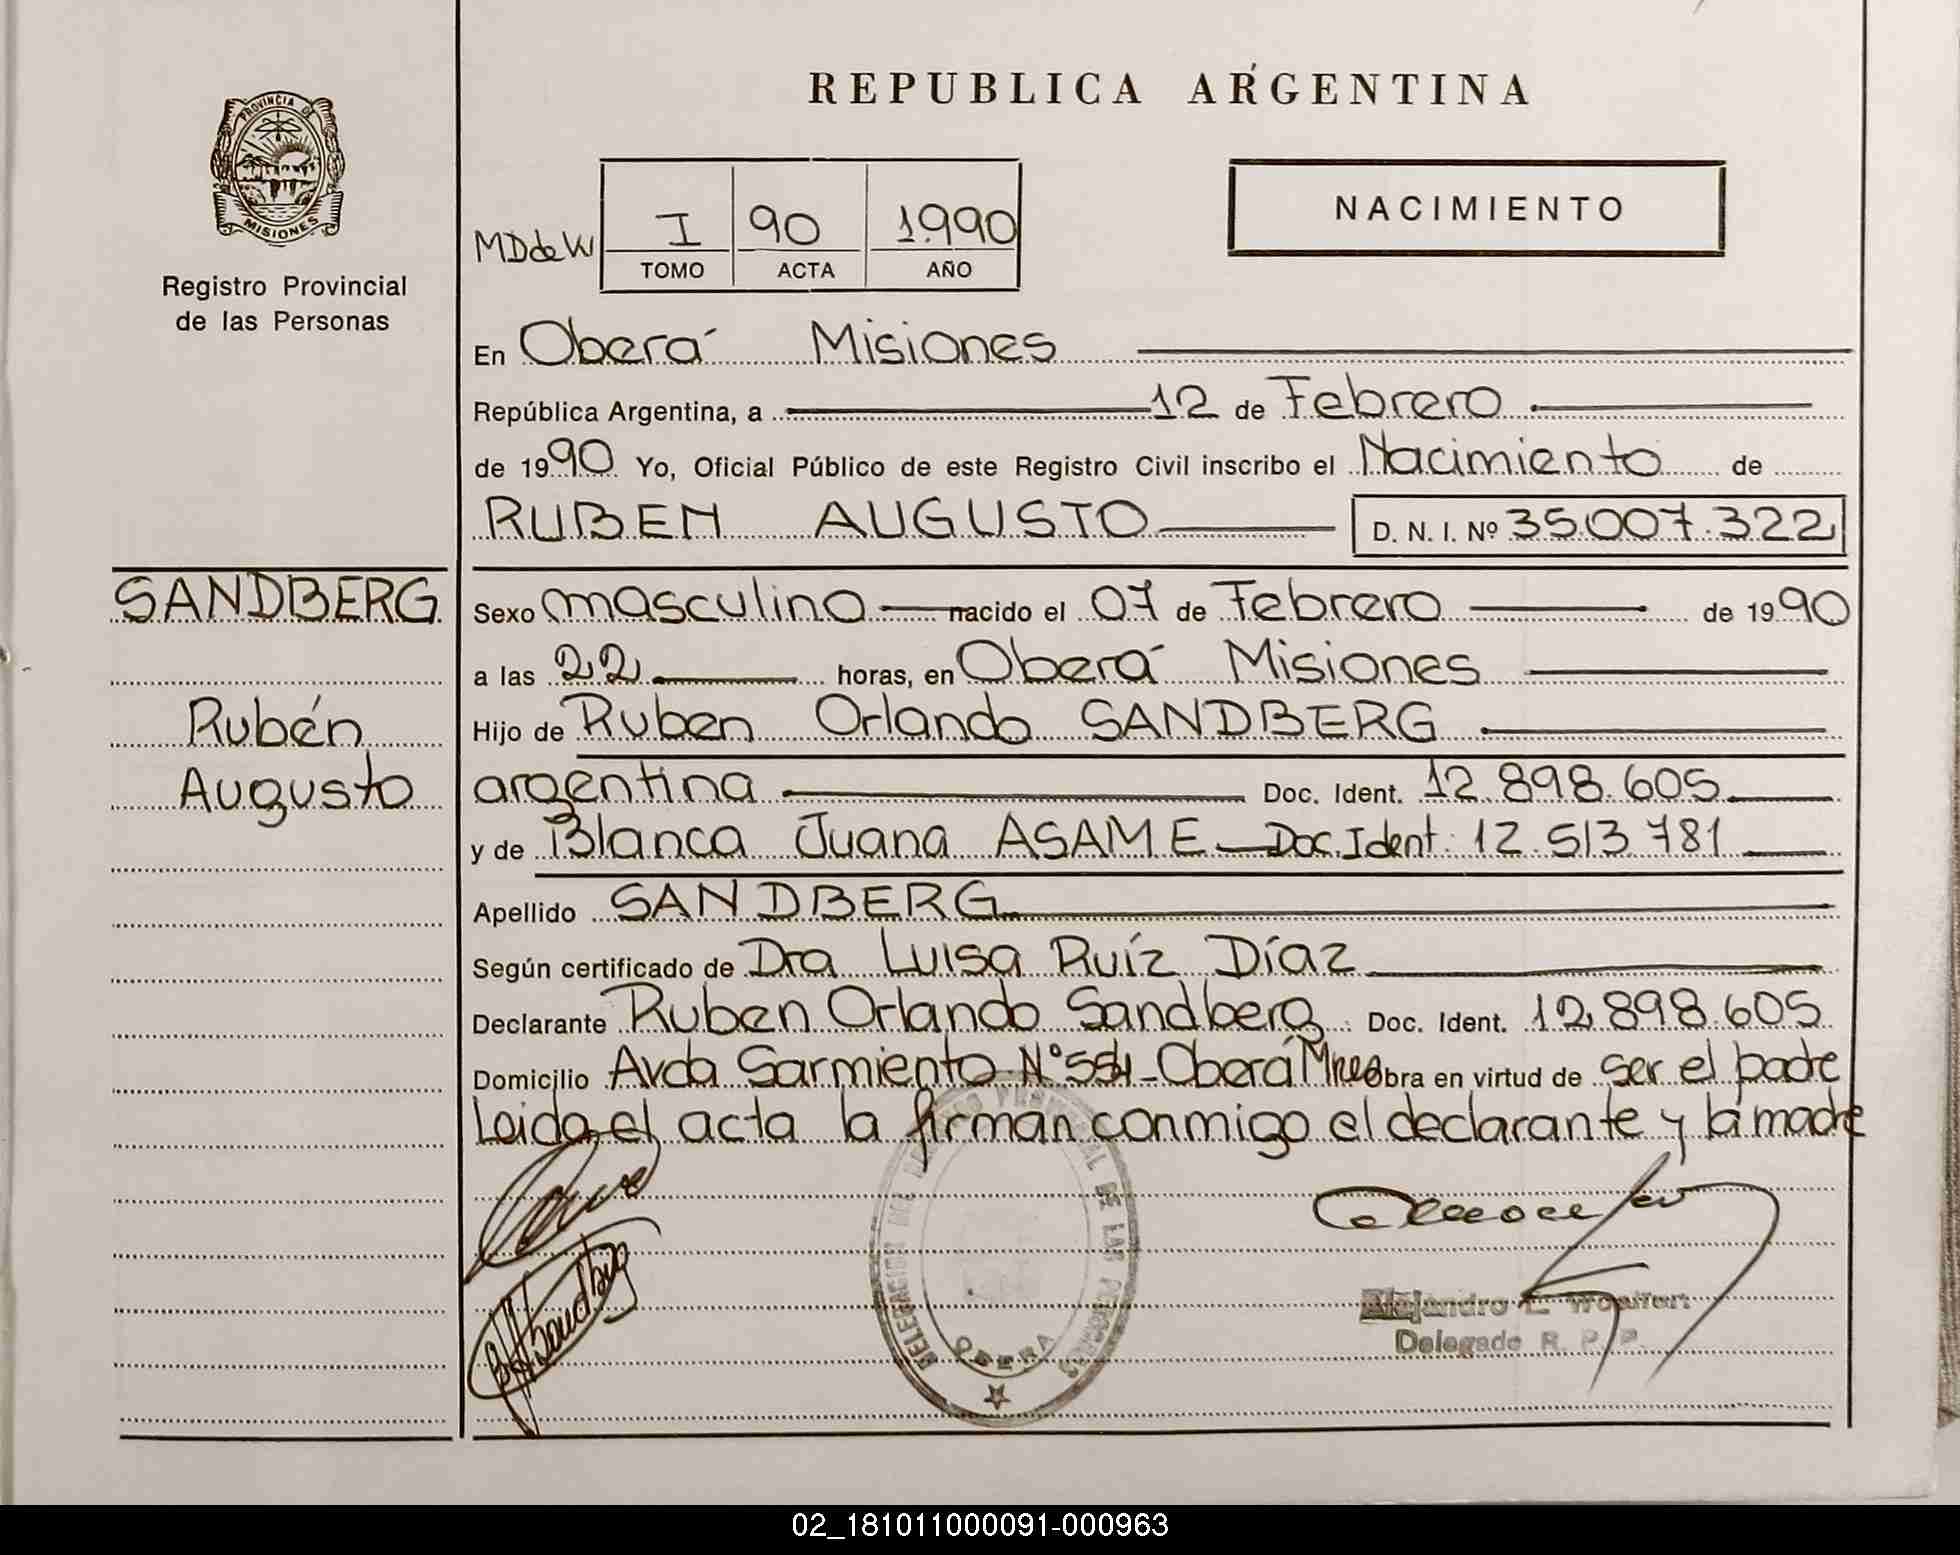 REPUBLICA ARGENTINA
PROVINCIA DE
MISIONES
Registro Provincial
de las Personas
NACIMIENTO
MDdeW
I 90 1.990
TOMO ACTA AÑO
En Oberá Misiones
República Argentina, a 12 de Febrero
de 1990 Yo, Oficial Público de este Registro Civil inscribo el Nacimiento de
RUBEN AUGUSTO D. N. I. Nº 35.007.322
SANDBERG
Rubén
Augusto
Sexo masculino nacido el 07 de Febrero de 1990
a las 22 horas, en Oberá Misiones
Hijo de Ruben Orlando SANDBERG
argentina Doc. Ident. 12.898.605
y de Blanca Juana ASAME Doc. Ident: 12.513.781
Apellido SANDBERG
Según certificado de Dra Luisa Ruíz Díaz
Declarante Ruben Orlando Sandberg Doc. Ident. 12.898.605
Domicilio Avda Sarmiento Nº 554 - Oberá Mnes Obra en virtud de ser el padre
Leida el acta la firman conmigo el declarante y la madre
DELEGACION DEL REGISTRO PROVINCIAL DE LAS PERSONAS
OBERA
Alejandro L.
Delegado R. P. P.
02_181011000091-000963